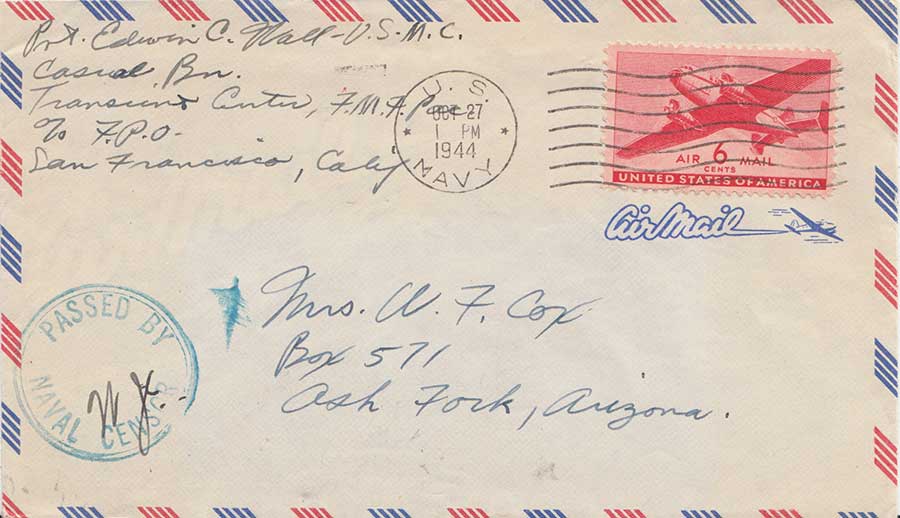 Pvt. Edwin C. Wall - U.S.M.C.
Casual Bn.
Transient Center, F.M.F. Pac
℅ F.P.O.
San Francisco, Calif
U.S.
OCT 27
1 PM
1944
NAVY
AIR 6 MAIL
CENTS
UNITED STATES OF AMERICA
Air Mail
PASSED BY
NAVAL CENSOR
Mrs. W. F. Cox
Box 571
Ash Fork, Arizona.